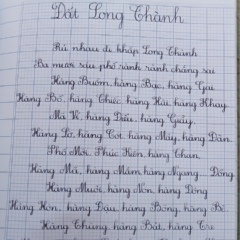 Đất Long Thành
Rủ nhau đi khắp Long Thành
Ba mươi sáu phố rành rành chẳng sai
Hàng Buồm, hàng Bạc, hàng Gai
Hàng Bồ, hàng Thiếc, hàng Hài, hàng Khay
Mã Vĩ, hàng Điếu, hàng Giầy
Hàng Lờ, hàng Cót, hàng Mây, hàng Đàn
Phố Mới, Phúc Kiến, hàng Than,
Hàng Mã, hàng Mắm, hàng Ngang, Đồng
Hàng Muối, hàng Nón, hàng Đông
Hàng Hòm, hàng Đậu, hàng Bông, hàng Bè
Hàng Thùng, hàng Bát, hàng Tre